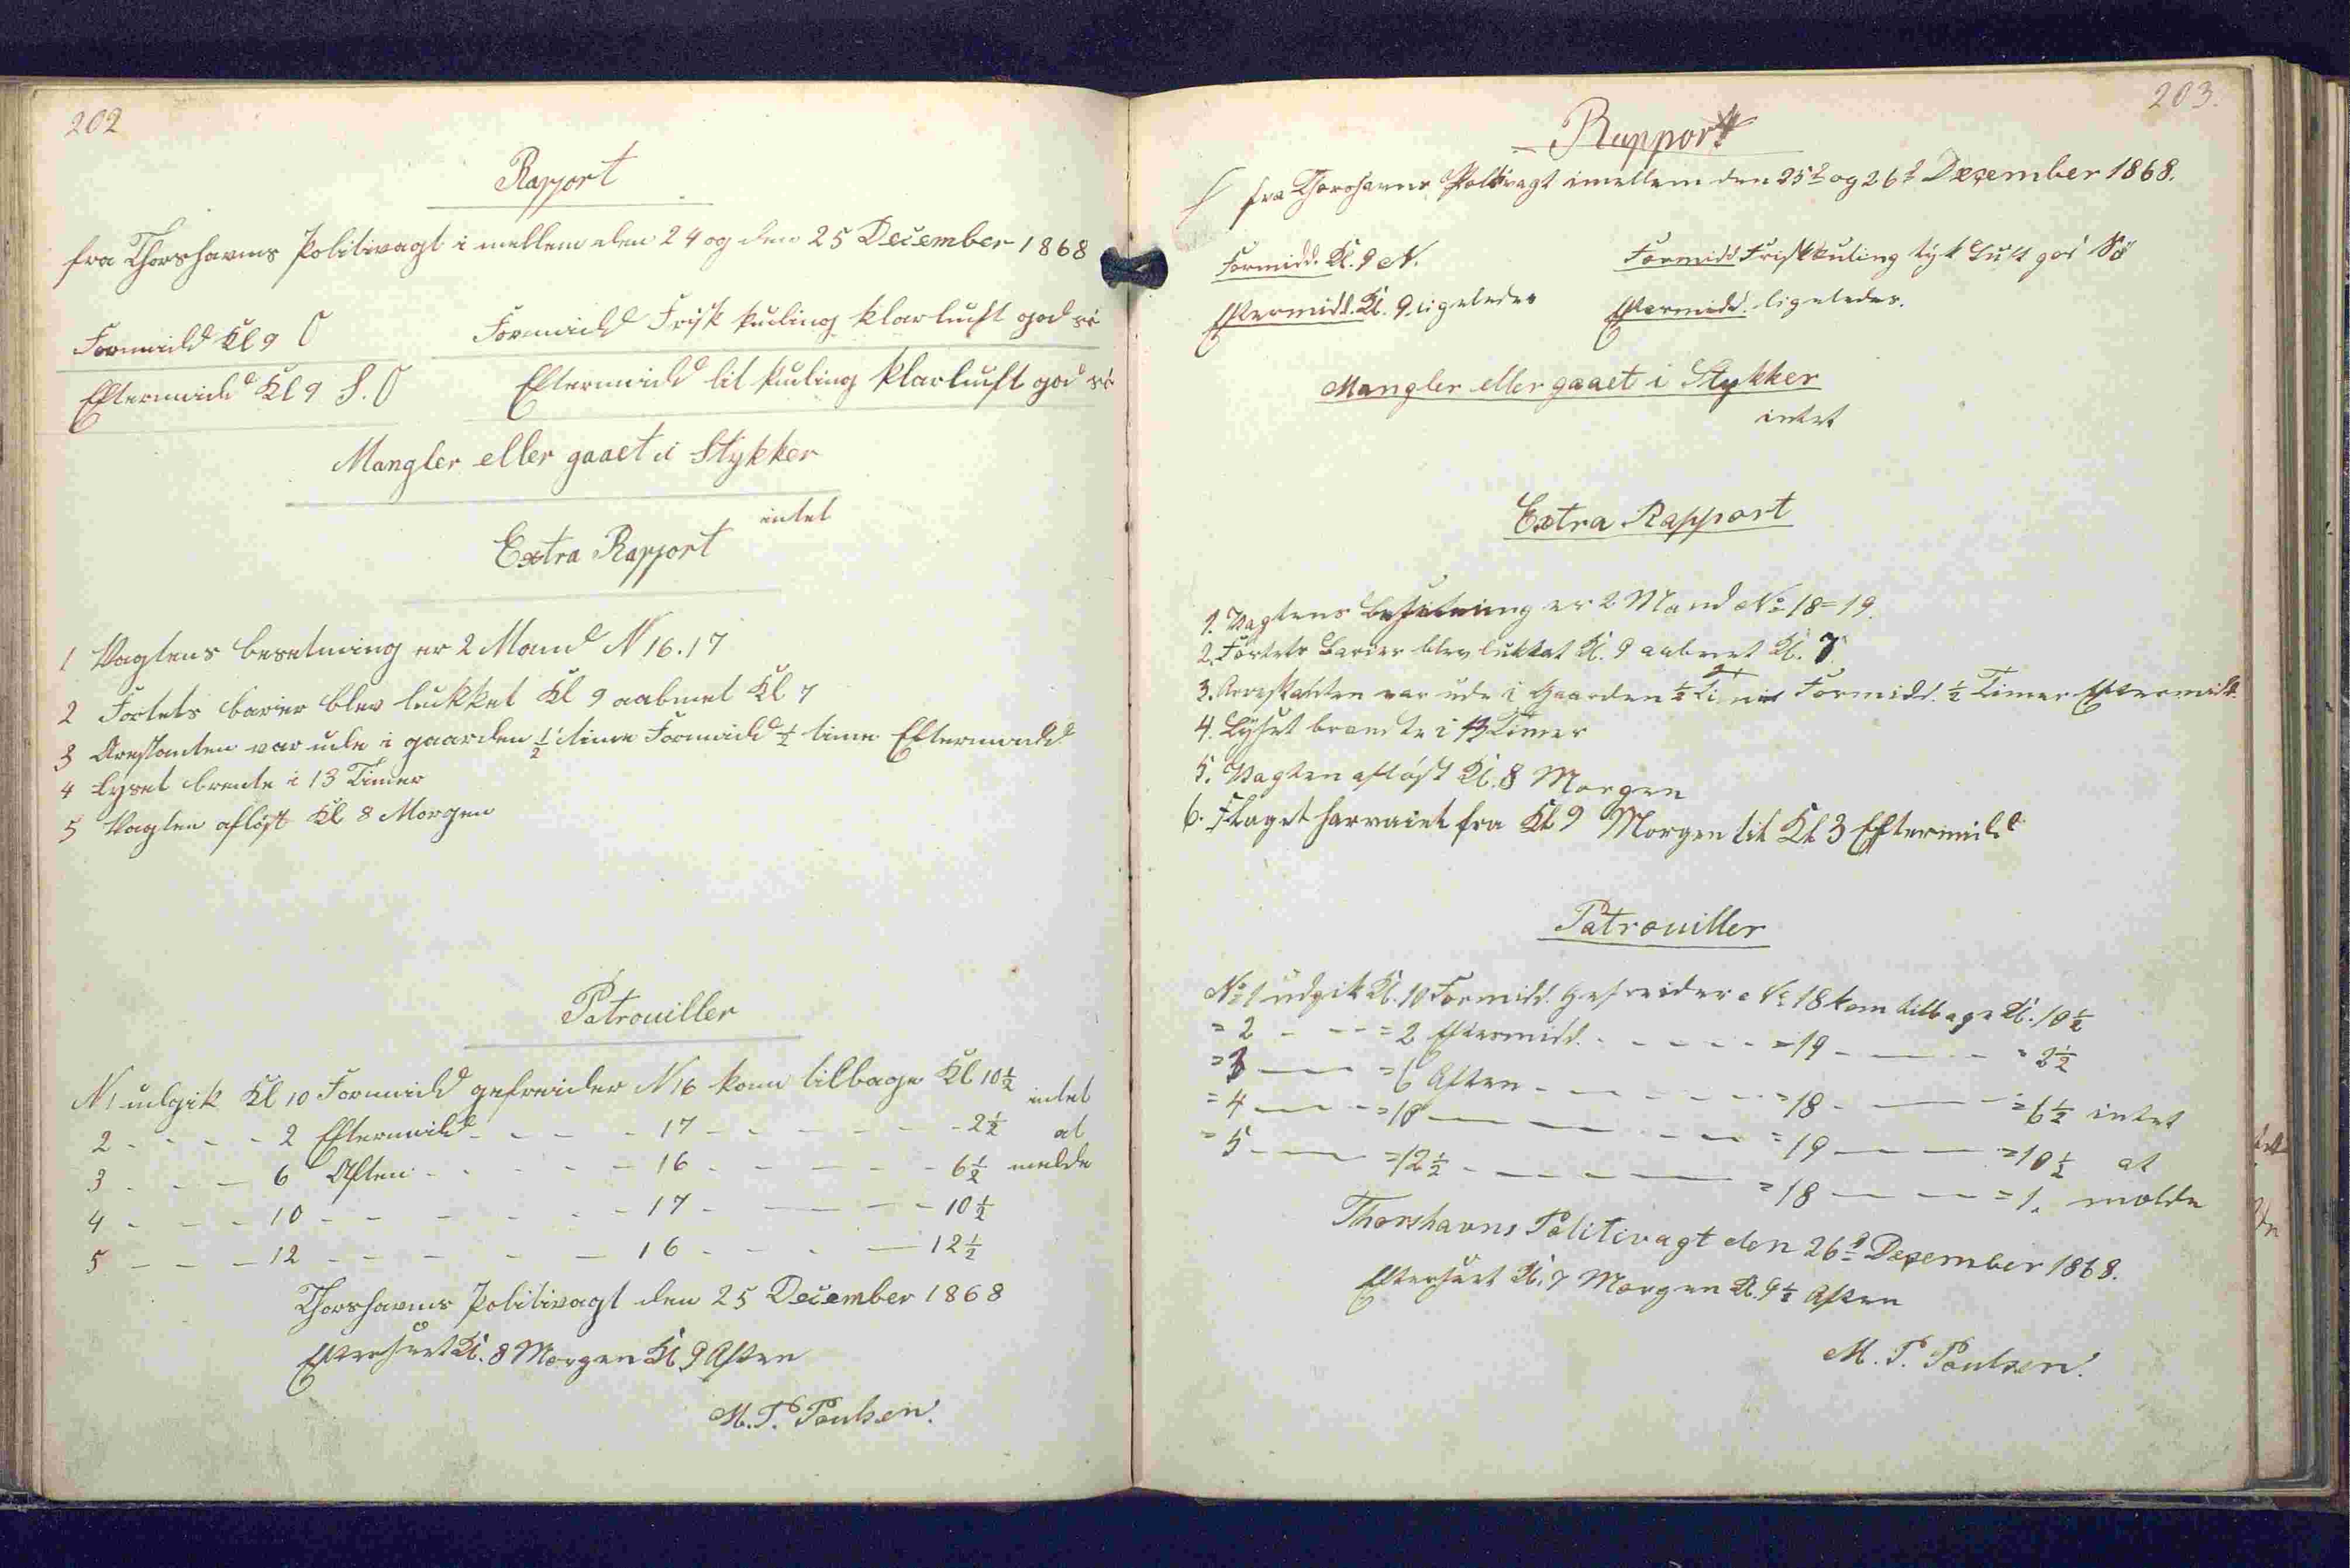 202
Rapport
fra Thorshavns Politivagt i mellem den 24 og den 25 December 1868
Formidd Kl 9 O Formidd Frisk kuling klarluft god sö
Eftermidd Kl 9 S.O Eftermidd lit kuling klarluft god sö
Mangler eller gaaet i Stykker
intet
Extra Rapport
1 Vagtens besetning er 2 Mand N 16.17
2 Fortets barier blev lukket Kl 9 aabnet Kl 7
3 Arestanten var ude i gaarden ½ time Formidd ½ time Eftermidd
4 Lyset brente i 13 Timer
5 Vagten afløst Kl 8 Morgen
Patrouiller
N 1 udgik Kl 10 Formidd gefreider N 16 kom tilbage Kl 10½ intet
2 - - - - 2 Eftermidd - - - - 17 - - - - - - 2½ at
3 - - - 6 Aften - - - - - 16 - - - - - 6½ melde
4 - - - 10 - - - - - - 17 - - - - 10½
5 - - - 12 - - - - - 16 - - - - 12½
Thorshavns Politivagt den 25 December 1868
Efterseet Kl. 8 Morgen Kl 9 Aften
M. P. Poulsen.
203.
Rapport
fra Thorshavns Politivagt imellem den 25d og 26d December 1868.
Formidd. Kl. 9 N. Formidd Friskkuling tyk Luft god Sö
Eftermidd. Kl. 9 ligeledes Eftermidd. ligeledes.
Mangler eller gaaet i Stykker
intet
Extra Rapport
1. Vagtens Besetning er 2 Mand No 18=19.
2. Fortets Barier blev lukket Kl. 9 aabnet Kl. 7
3. Arrestanten var ude i Gaarden ½ Time Formidd. ½ Timer Eftermidd.
4. Lyset brændte i 13 Timer
5. Vagten afløst Kl. 8 Morgen
6. Flaget har vaiet fra Kl 9 Morgen til Kl 3 Eftermidd
Patrouiller
No 1 udgik Kl. 10 Formidd. Gefreider No 18 kom tilbage Kl. 10½
= 2 - - - = 2 Eftermidd. - - - - = 19 - - - = 2½
= 3 - - = 6 Aften - - - - - = 18 - - - = 6½ intet
= 4 - - - = 10 - - - - - = 19 - - - = 10½ at
= 5 - - = 12½ - - - - - = 18 - - - = 1. melde
Thorshavns Politivagt den 26d December 1868.
Efterseet Kl. 7 Morgen Kl. 9½ Aften
M. P. Poulsen.